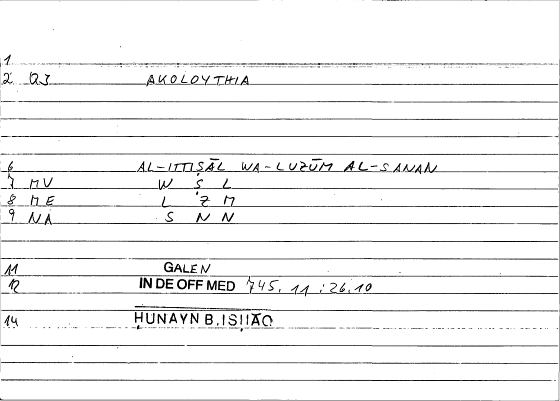 1
2 QJ AKOLOYTHIA
6 AL-ITTIṢĀL WA-LUZŪM AL-SANAN
7 MV W Ṣ L
8 ME L Z M
9 NA S N N
11 GALEN
12 IN DE OFF MED 745, 11 : 26,10
14 ḤUNAYN B. ISḤĀQ